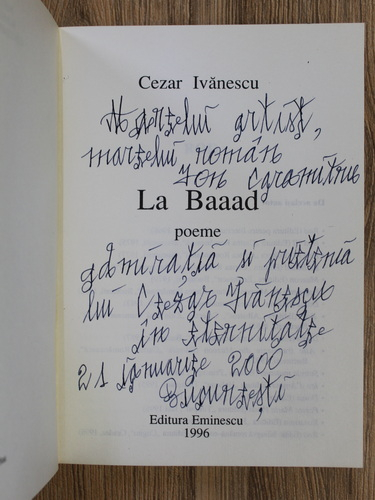 Cezar Ivănescu
Marelui artist,
marelui român
Ion Caramitru
La Baaad
poeme
admirația și prietenia
lui Cezar Ivănescu
în eternitate
21 ianuarie 2000
București
Editura Eminescu
1996